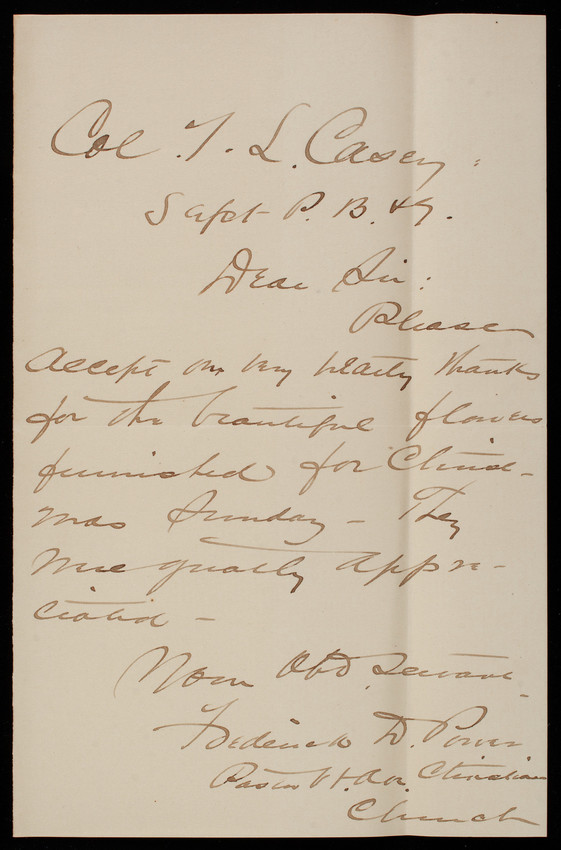 Col. T. L. Casey:
Supt P. B. & G.
Dear Sir:
Please
accept my very hearty thanks
for the beautiful flowers
furnished for Christ-
mas Sunday - They
were greatly appre-
ciated -
Your Obd. Servant -
Frederick D. Power
Pastor Vt. Ave. Christian
Church